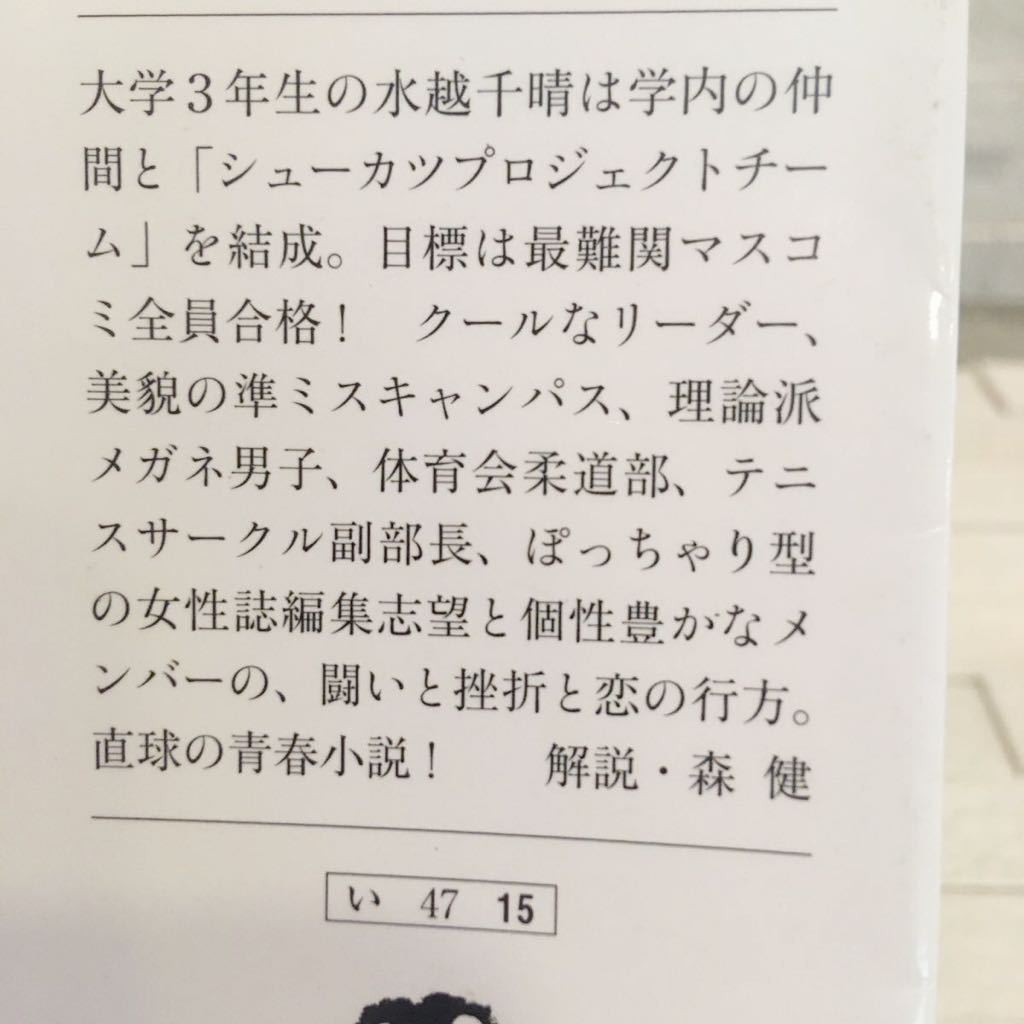 大学３年生の水越千晴は学内の仲
間と「シューカツプロジェクトチー
ム」を結成。目標は最難関マスコ
ミ全員合格！　クールなリーダー、
美貌の準ミスキャンパス、理論派
メガネ男子、体育会柔道部、テニ
スサークル副部長、ぽっちゃり型
の女性誌編集志望と個性豊かなメ
ンバーの、闘いと挫折と恋の行方。
直球の青春小説！　　解説・森 健
い 47 15